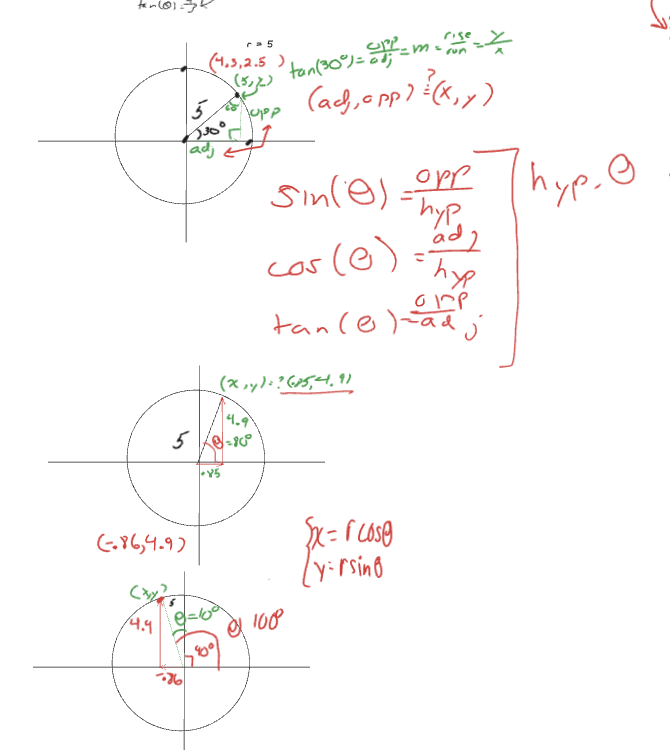 tan(θ)=
r = 5
(4.3, 2.5)
tan(30°)= opp/adj = m = rise/run = y/x
(5, 2)
(adj, opp) ?= (x, y)
5
60
opp
30°
adj
sin(θ) = opp/hyp
hyp. θ
cos(θ) = adj/hyp
tan(θ) = opp/adj
(x, y) = ? (.85, 4.9)
4.9
5
θ = 80°
.85
(-.86, 4.9)
x = r cosθ
y = r sinθ
(x, y)
5
θ = 10°
4.9
θ 100°
90°
-.86